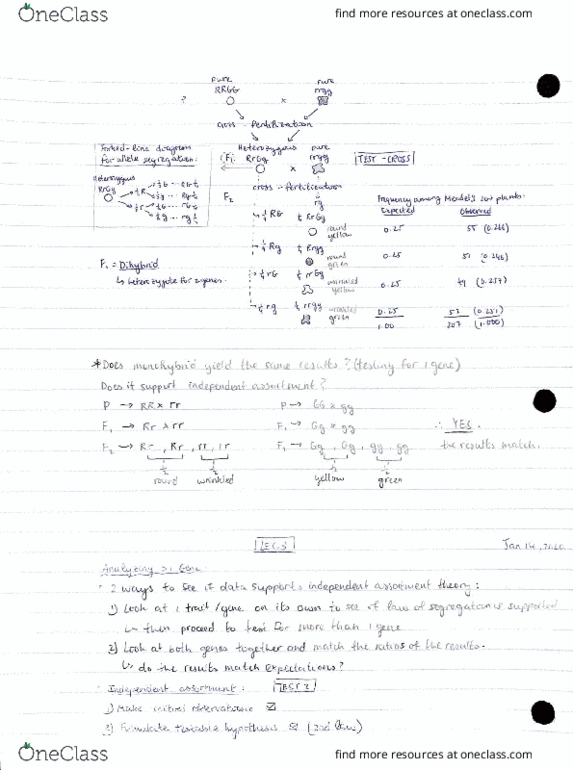 OneClass
find more resources at oneclass.com
pure
RRGG
pure
rrgg
?
x
cross - fertilization
Forked-line diagram
for allele segregation:
Heterozygous
RrGg
F1
Heterozygous
RrGg
pure
rrgg
x
TEST-CROSS
F2
cross - fertilization
rg
Frequency among Mendel's 207 plants:
Expected
Observed
¼ RG
¼ RrGg
round
yellow
0.25
55 (0.266)
¼ Rg
¼ Rrgg
round
green
0.25
51 (0.246)
¼ rG
¼ rrGg
wrinkled
yellow
0.25
49 (0.237)
¼ rg
¼ rrgg
wrinkled
green
0.25
52 (0.251)
1.00
207 (1.000)
F1 = Dihybrid
↳ heterozygote for 2 genes.
*Does monohybrid yield the same results? (testing for 1 gene)
Does it support independent assortment?
P → RR x rr
P → GG x gg
F1 → Rr x rr
F1 → Gg x gg
∴ YES.
F2 → Rr, Rr, rr, rr
F2 → Gg, Gg, gg, gg
the results match.
½
round
½
wrinkled
½
yellow
½
green
LEC.3
Jan 14, 2020
Analyzing >1 Gene
2 ways to see if data supports independent assortment theory:
1) Look at 1 trait/gene on its own to see if law of segregation is supported
↳ then proceed to test for more than 1 gene
2) Look at both genes together and match the ratios of the results.
↳ do the results match expectations?
Independent assortment:
1) Make initial observations ☑
2) Formulate testable hypothesis ☑ (2nd law)
OneClass
find more resources at oneclass.com